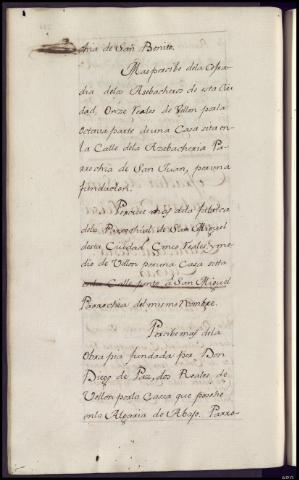 chia de San Benito.
Mas percibe dela Cofra
dia delos Azebacheros de esta Ciu
dad, Onze reales de Vellon porla
Octava parte de una Casa sita en
la Calle dela Azebacheria Pa
rrochia de San Juan, por una
fundacion.
Percive mas dela fabrica
dela Parrochial de San Miguel
desta Ciudad, Cinco reales y me
dio de Vellon por una Casa sita
enla Calle junto a San Miguel
Parrochia del mismo Nombre.
Percibe mas dela
Obra pia fundada por Don
Diego de Paz, dos Reales de
Vellon porla Casa que posehe
enla Algaria de Abajo. Parro-